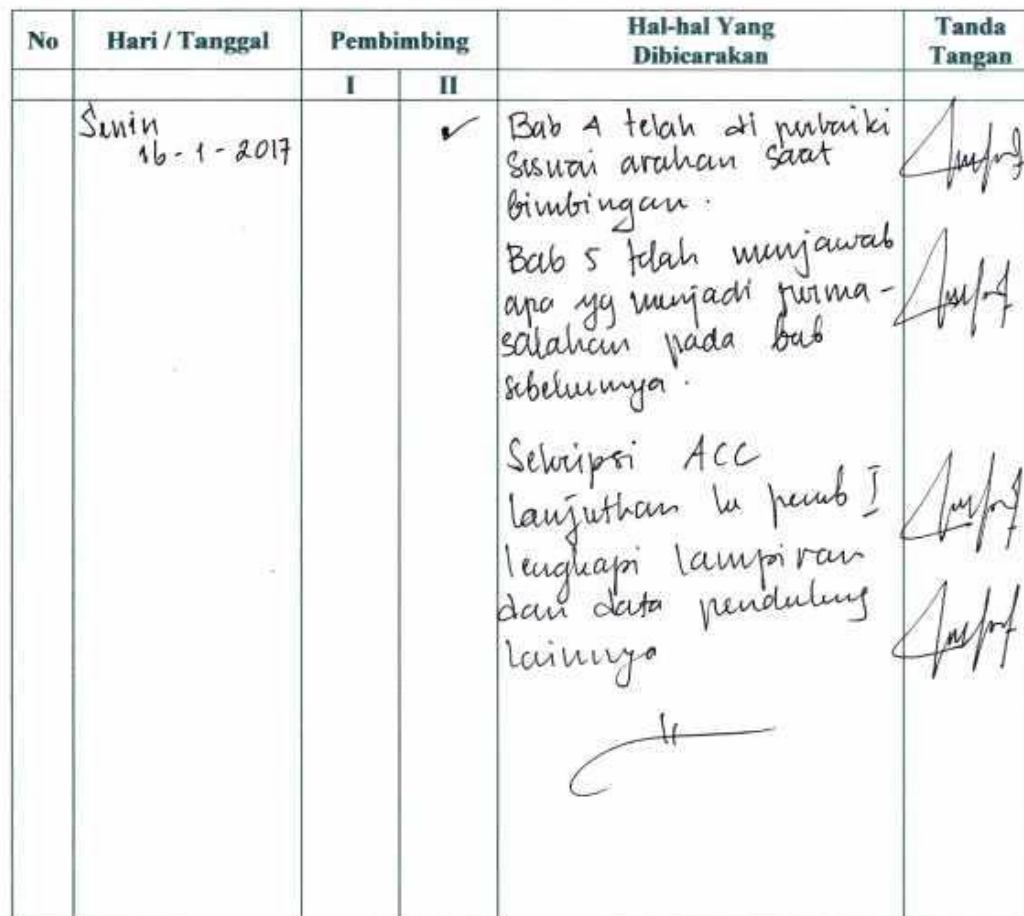 No Hari / Tanggal Pembimbing Hal-hal Yang Dibicarakan Tanda Tangan
I II
Senin
16 - 1 - 2017
✓
Bab 4 telah di perbaiki
sesuai arahan saat
bimbingan.
Bab 5 telah menjawab
apa yg menjadi perma-
salahan pada bab
sebelumnya.
Sekripsi ACC
lanjutkan ke pemb I
lengkapi lampiran
dan data pendukung
lainnya